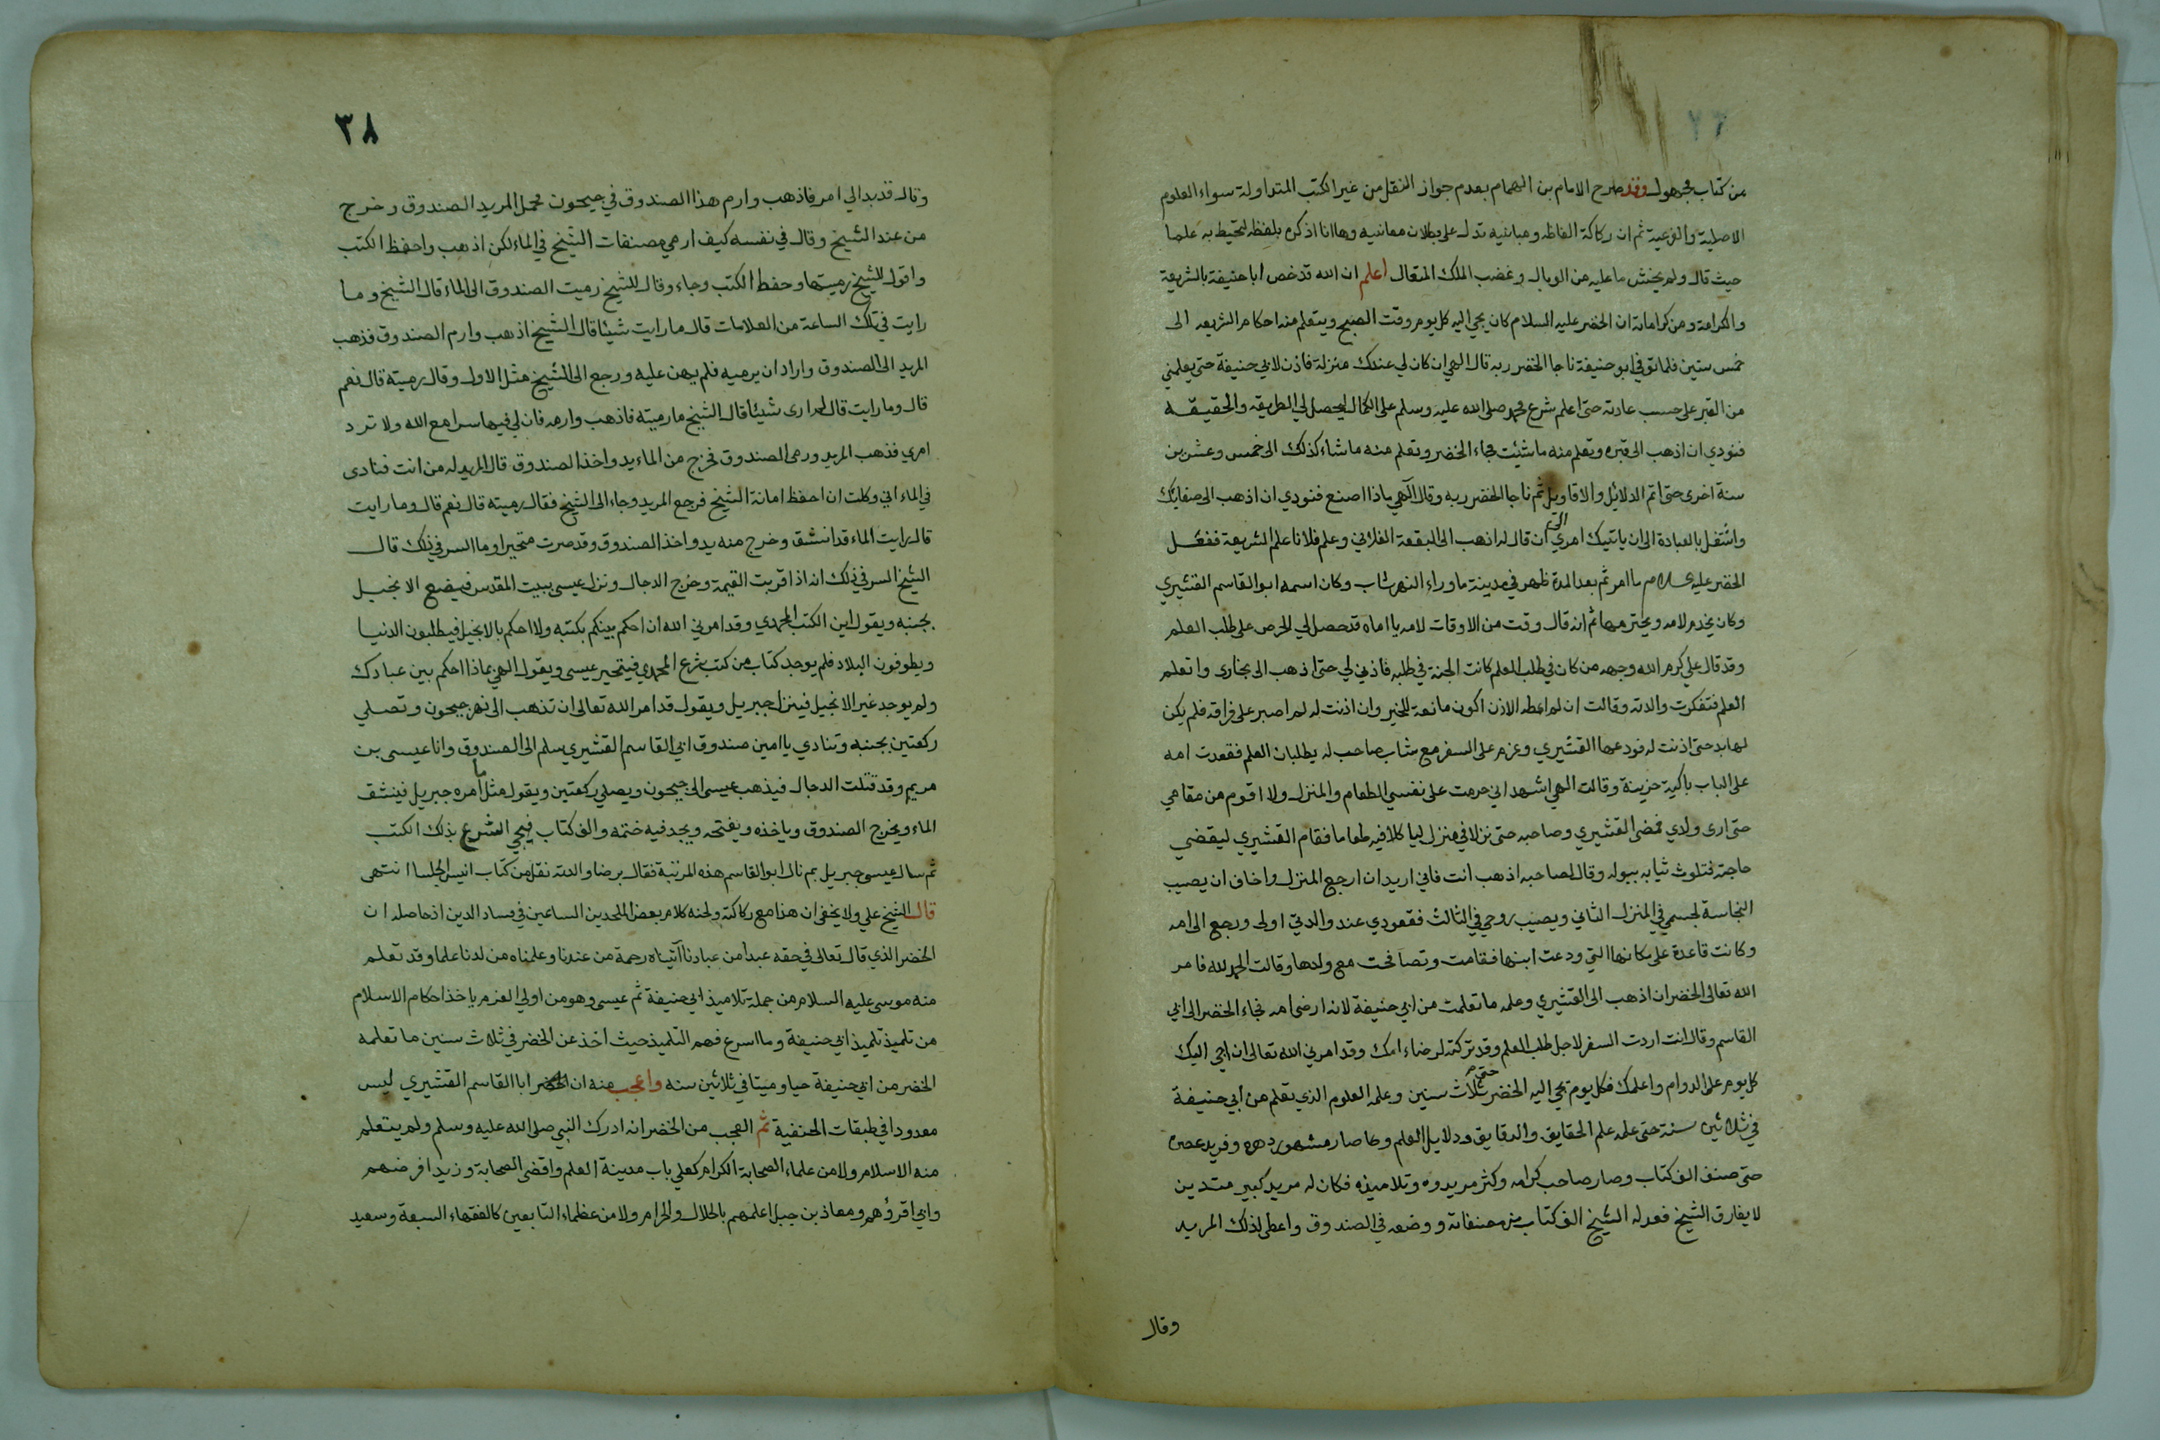 من كتاب مجهول وقد صرح الامام بن الهمام بعدم جواز النقل من غير الكتب المتداولة سواء العلوم
الاصلية والفرعية ثم ان ركاكة الفاظه ومبانيه تدل على بطلان معانيه وها انا اذكره بلفظه لتحيط به علما
حيث قال ولم يخش ما عليه من الوبال وغضب الملك المتعال اعلم ان الله قد خص ابا حنيفة بالشريعة
والكرامة ومن كراماته ان الخضر عليه السلام كان يجي اليه كل يوم وقت الصبح ويتعلم منه احكام الشريعه الى
خمس ستين فلما توفي ابو حنيفة ناجا الخضر ربه قال الهي ان كان لي عندك منزلة فاذن لابي حنيفة حتى يعلمني
من القبر على حسب عادته حتى اعلم شرع محمد صلى الله عليه وسلم على الكمال ليحصل لي الطريقه والحقيقه
فنودي ان اذهب الى قبره وتعلم منه ما شئت فجاء الخضر وتعلم منه ما شاء كذلك الى خمس وعشرين
سنة اخرى حتى اتم الدلائل والاقاويل ثم ناجا الخضر ربه وقال الهي ماذا اصنع فنودي ان اذهب الى صفائك
واشتغل بالعبادة الى ان ياتيك امري الى ان قال له اذهب الى البقعة الفلاني وعلم فلانا علم الشريعة ففعل
الخضر عليه السلام ما امر ثم بعد المدة ظهر في مدينة ما وراء النهر شاب وكان اسمه ابو القاسم القشيري
وكان يخدم لامه ويحترمها ثم انه قال وقت من الاوقات لامه يا اماه قد حصل لي الحرص على طلب العلم
وقد قال علي كرم الله وجهه من كان في طلب العلم كانت الجنة في طلبه فاذني لي حتى اذهب الى بخارى واتعلم
العلم فتفكرت والدته وقالت ان لم اعطه الاذن اكون مانعة للخير وان اذنت له لم اصبر على فراقه فلم يكن
لها بد حتى اذنت له فودعها القشيري وعزم على السفر مع شاب صاحب له يطلبان العلم فقعدت امه
على الباب باكية حزينة وقالت الهي اشهد اني حرمت على نفسي الطعام والمنزل ولا اقوم من مقامي
حتى ارى ولدي فمضى القشيري وصاحبه حتى نزلا في منزل لياكلا فيه طعاما فقام القشيري ليقضي
حاجته فتلوث ثيابه ببوله وقال لصاحبه اذهب انت فاني اريد ان ارجع المنزل واخاف ان يصيب
النجاسة لجسمي في المنزل الثاني ويصيب روحي في الثالث فقعودي عند والدتي اولى ورجع الى امه
وكانت قاعدة على مكانها التي ودعت ابنها فقامت وتصافحت مع ولدها وقالت الحمد لله فامر
الله تعالى الخضر ان اذهب الى القشيري وعلمه ما تعلمت من ابي حنيفة لانه ارضى امه فجاء الخضر الى ابي
القاسم وقال انت اردت السفر لاجل طلب العلم وقد تركته لرضاء امك وقد امرني الله تعالى ان اجي اليك
كل يوم على الدوام واعلمك فكل يوم يجي اليه الخضر حتى ثلاث سنين وعلمه العلوم الذي تعلم من أبي حنيفة
في ثلاثين سنة حتى علمه علم الحقايق والدقايق ودلايل العلم وصار مشهور دهره وفريد عصره
حتى صنف الف كتاب وصار صاحب كرامه وكثر مريدوه وتلاميذه فكان له مريد كبير متدين
لا يفارق الشيخ فعد له الشيخ الف كتاب من مصنفاته ووضعه في الصندوق واعطى لذلك المريد
وقال
٣٨
وقال قد بدا لي امر فاذهب وارم هذا الصندوق في جيحون فحمل المريد الصندوق وخرج
من عند الشيخ وقال في نفسه كيف ارمي مصنفات الشيخ في الماء لكن اذهب واحفظ الكتب
واقول للشيخ رميتها وحفظ الكتب وجاء وقال للشيخ رميت الصندوق الى الماء قال الشيخ وما
رايت في تلك الساعة من العلامات قال ما رايت شيئا قال الشيخ اذهب وارم الصندوق فذهب
المريد الى الصندوق واراد ان يرميه فلم يهن عليه ورجع الى الشيخ مثل الاول وقال رميته قال نعم
قال وما رايت قال لم ارى شيئا قال الشيخ ما رميته فاذهب وارمه فان لي فيها سرا مع الله ولا ترد
امري فذهب المريد ورمى الصندوق فخرج من الماء يد واخذ الصندوق قال المريد له من انت فنادى
في الماء اني وكلت ان احفظ امانة الشيخ فرجع المريد وجاء الى الشيخ فقال رميته قال نعم قال وما رايت
قال رايت الماء قد انشق وخرج منه يد واخذ الصندوق وقد صرت متحيرا وما السر في ذلك قال
الشيخ السر في ذلك انه اذا قربت القيمة وخرج الدجال ونزل عيسى ببيت المقدس فيضع الانجيل
بجنبه ويقول اين الكتب المحمدي وقد امرني الله ان احكم بينكم بكتبه ولا احكم بالانجيل فيطلبون الدنيا
ويطوفون البلاد فلم يوجد كتاب من كتب شرع المحمدي فيتحير عيسى ويقول الهي بماذا احكم بين عبادك
ولم يوجد غير الانجيل فينزل جبريل ويقول قد امر الله تعالى ان تذهب الى نهر جيحون وتصلي
ركعتين بجنبه وتنادي يا امين صندوق ابي القاسم القشيري سلم الى الصندوق وانا عيسى بن
مريم وقد قتلت الدجال فيذهب عيسى الى جيحون ويصلي ركعتين ويقول مثل ما أمره جبريل فينشق
الماء ويخرج الصندوق وياخذه ويفتحه ويجد فيه ختمه والف كتاب فيجي الشرع بذلك الكتب
ثم سال عيسى جبريل بم نال ابو القاسم هذه المرتبة فقال برضا والدته نقل من كتاب انيس الجلسا انتهى
قال الشيخ علي ولا يخفى ان هذا مع ركاكته ولحنه كلام بعض الملحدين الساعين في فساد الدين اذ حاصله ان
الخضر الذي قال تعالى في حقه عبدا من عبادنا آتيناه رحمة من عندنا وعلمناه من لدنا علما وقد تعلم
منه موسى عليه السلام من جملة تلاميذ ابي حنيفة ثم عيسى وهو من اولي العزم ياخذ احكام الاسلام
من تلميذ تلميذ ابي حنيفة وما اسرع فهم التلميذ حيث اخذ عن الخضر في ثلاث سنين ما تعلمه
الخضر من ابي حنيفة حيا وميتا في ثلاثين سنه واعجب منه ان ابا القاسم القشيري ليس
معدودا في طبقات الحنفية ثم العجب من الخضر انه ادرك النبي صلى الله عليه وسلم ولم يتعلم
منه الاسلام ولا من علماء الصحابة الكرام كعلي باب مدينة العلم واقضى الصحابة وزيد افرضهم
وابي اقرؤهم ومعاذ بن جبل اعلمهم بالحلال والحرام ولا من عظماء التابعين كالفقهاء السبعة وسعيد